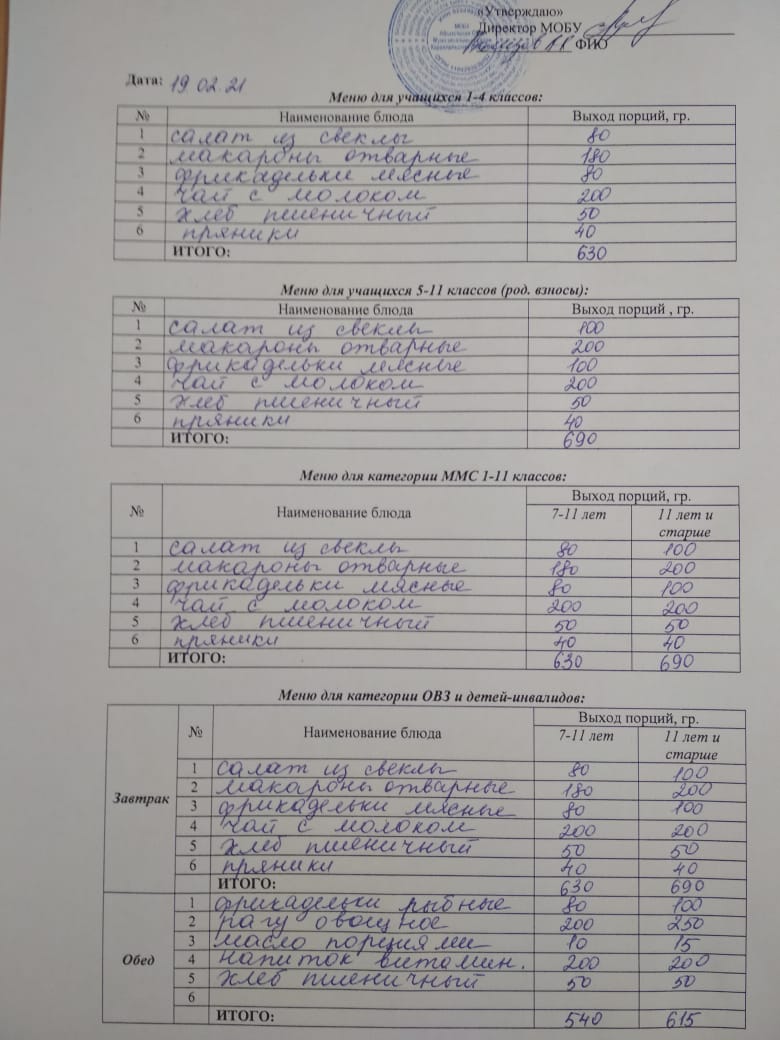 «Утверждаю»
Директор МОБУ
ФИО
Дата: 19.02.21
Меню для учащихся 1-4 классов:
№ Наименование блюда Выход порций, гр.
1 салат из свеклы 80
2 макароны отварные 180
3 фрикадельки мясные 80
4 чай с молоком 200
5 хлеб пшеничный 50
6 пряники 40
ИТОГО: 630
Меню для учащихся 5-11 классов (род. взносы):
№ Наименование блюда Выход порций , гр.
1 салат из свеклы 100
2 макароны отварные 200
3 фрикадельки мясные 100
4 чай с молоком 200
5 хлеб пшеничный 50
6 пряники 40
ИТОГО: 690
Меню для категории ММС 1-11 классов:
№ Наименование блюда Выход порций, гр.
7-11 лет 11 лет и старше
1 салат из свеклы 80 100
2 макароны отварные 180 200
3 фрикадельки мясные 80 100
4 чай с молоком 200 200
5 хлеб пшеничный 50 50
6 пряники 40 40
ИТОГО: 630 690
Меню для категории ОВЗ и детей-инвалидов:
№ Наименование блюда Выход порций, гр.
7-11 лет 11 лет и старше
Завтрак
1 салат из свеклы 80 100
2 макароны отварные 180 200
3 фрикадельки мясные 80 100
4 чай с молоком 200 200
5 хлеб пшеничный 50 50
6 пряники 40 40
ИТОГО: 630 690
Обед
1 фрикадельки рыбные 80 100
2 рагу овощное 200 250
3 масло порциями 10 15
4 напиток витамин. 200 200
5 хлеб пшеничный 50 50
6
ИТОГО: 540 615